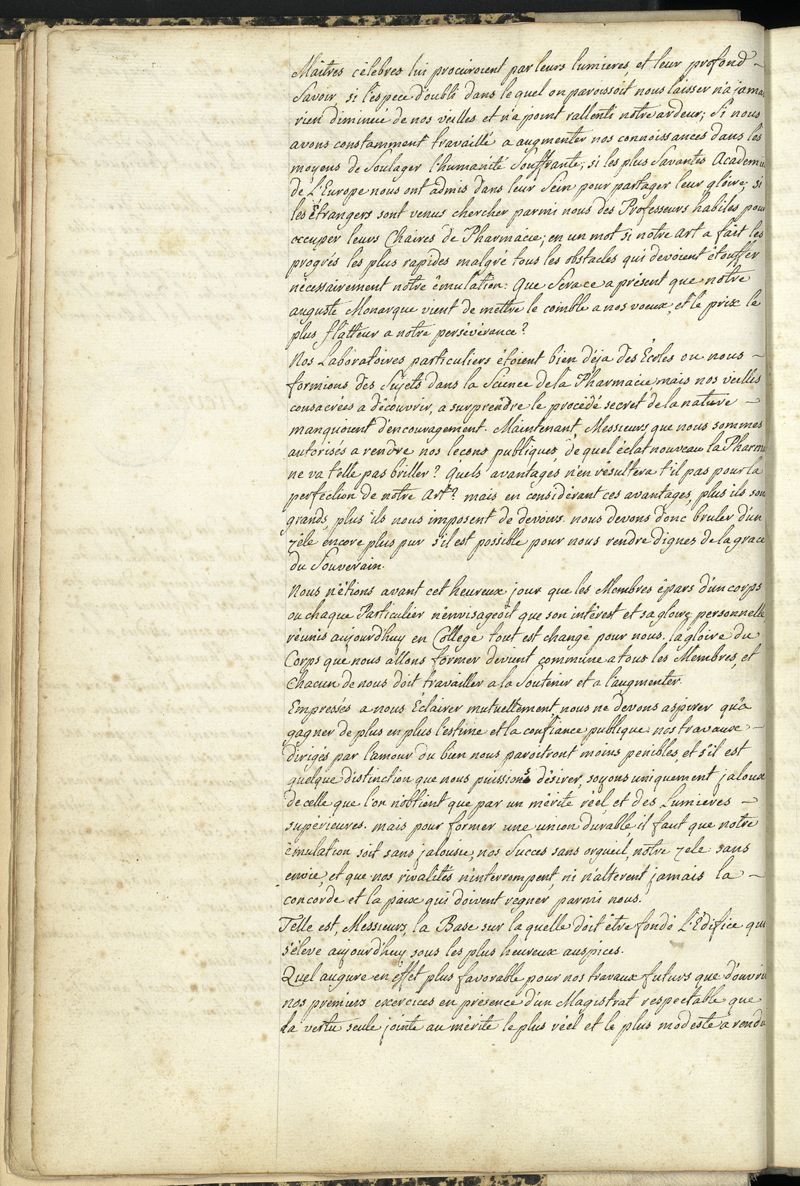 Maitres célebres lui procuroient par leurs lumieres et leur profond –
Savoir, si l'espece d'oubli dans lequel on paroissoit nous laisser n'a jamai
rien diminué de nos veilles et n'a point rallenti notre ardeur; Si nous
avons constamment travaillé a augmenter nos connoissances dans les
moyens de Soulager l'humanité Souffrante; si les plus Savantes Academi
de L'Europe nous ont admis dans leur Sein pour partager leur gloire; si
les étrangers sont venus chercher parmi nous des Professeurs habiles pour
occuper leurs Chaires de Pharmacie; en un mot si notre art a fait les
progrés les plus rapides malgré tous les obstacles qui devoient étouffer
nécessairement notre émulation: Que Sera ce a présent que notre
auguste Monarque vient de mettre le comble a nos voeux, et le prix le
plus flatteur a notre persévérance?
Nos Laboratoires particuliers étoient bien déja des Écoles ou nous –
formions des Sujets dans la Science de la Pharmacie mais nos veilles
consacrées a découvrir, a surprendre le procédé secret de la nature –
manquoient d'encouragement. Maintenant, Messieurs, que nous sommes
autorisés a rendre nos lecons publiques, de quel éclat nouveau la Pharma
ne va t'elle pas briller? Quels avantages n'en résultera t'il pas pour la
perfection de notre Art? mais en considérant ces avantages, plus ils son
grands, plus ils nous imposent de devoirs. nous devons donc bruler d'un
zéle encore plus pur s'il est possible pour nous rendre dignes de la grace
du Souverain.
Nous n'étions avant cet heureux jour que les Membres épars d'un corps
ou chaque Particulier n'envisageoit que son intérest et sa gloire personnelle
réunis aujourd'huy en Collège tout est changé pour nous. la gloire du
Corps que nous allons former devient commune a tous les Membres, et
Chacun de nous doit travailler a la Soutenir et a l'augmenter.
Empressés a nous Eclairer mutuellement, nous ne devons aspirer qu'a
gagner de plus en plus l'estime et la confiance publique. nos travaux –
dirigés par l'amour du bien nous paroitront moins penibles, et s'il est
quelque distinction que nous puissions désirer, soyons uniquement jaloux
de celle que l'on n'obtient que par un mérite réel et des Lumieres –
supérieures. mais pour former une union durable, il faut que notre
émulation soit sans jalousie, nos Succes sans orgueil, notre zele sans
envie, et que nos rivalités n'interrompent, ni n'alterent jamais la –
concorde et la paix qui doivent regner parmi nous.
Telle est, Messieurs, la Base sur la quelle doit être fondé L'Edifice qui
s'éleve aujourd'huy sous les plus heureux auspices.
Quel augure en effet plus favorable pour nos travaux futurs que d'ouvrir
nos premiers exercices en presence d'un Magistrat respectable que
la vertu seule jointe au mérite le plus réel et le plus modeste a rendu